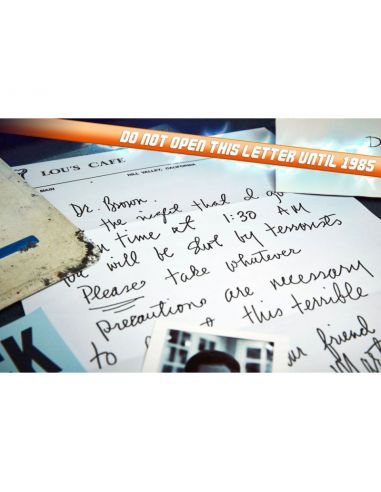 DO NOT OPEN THIS LETTER UNTIL 1985
D
LOU'S CAFE
HILL VALLEY, CALIFORNIA
MAIN
Dr. Brown,
the night that I go
in time at 1:30 AM
you will be shot by terrorists
Please take whatever
precautions are necessary
to this terrible
friend
K